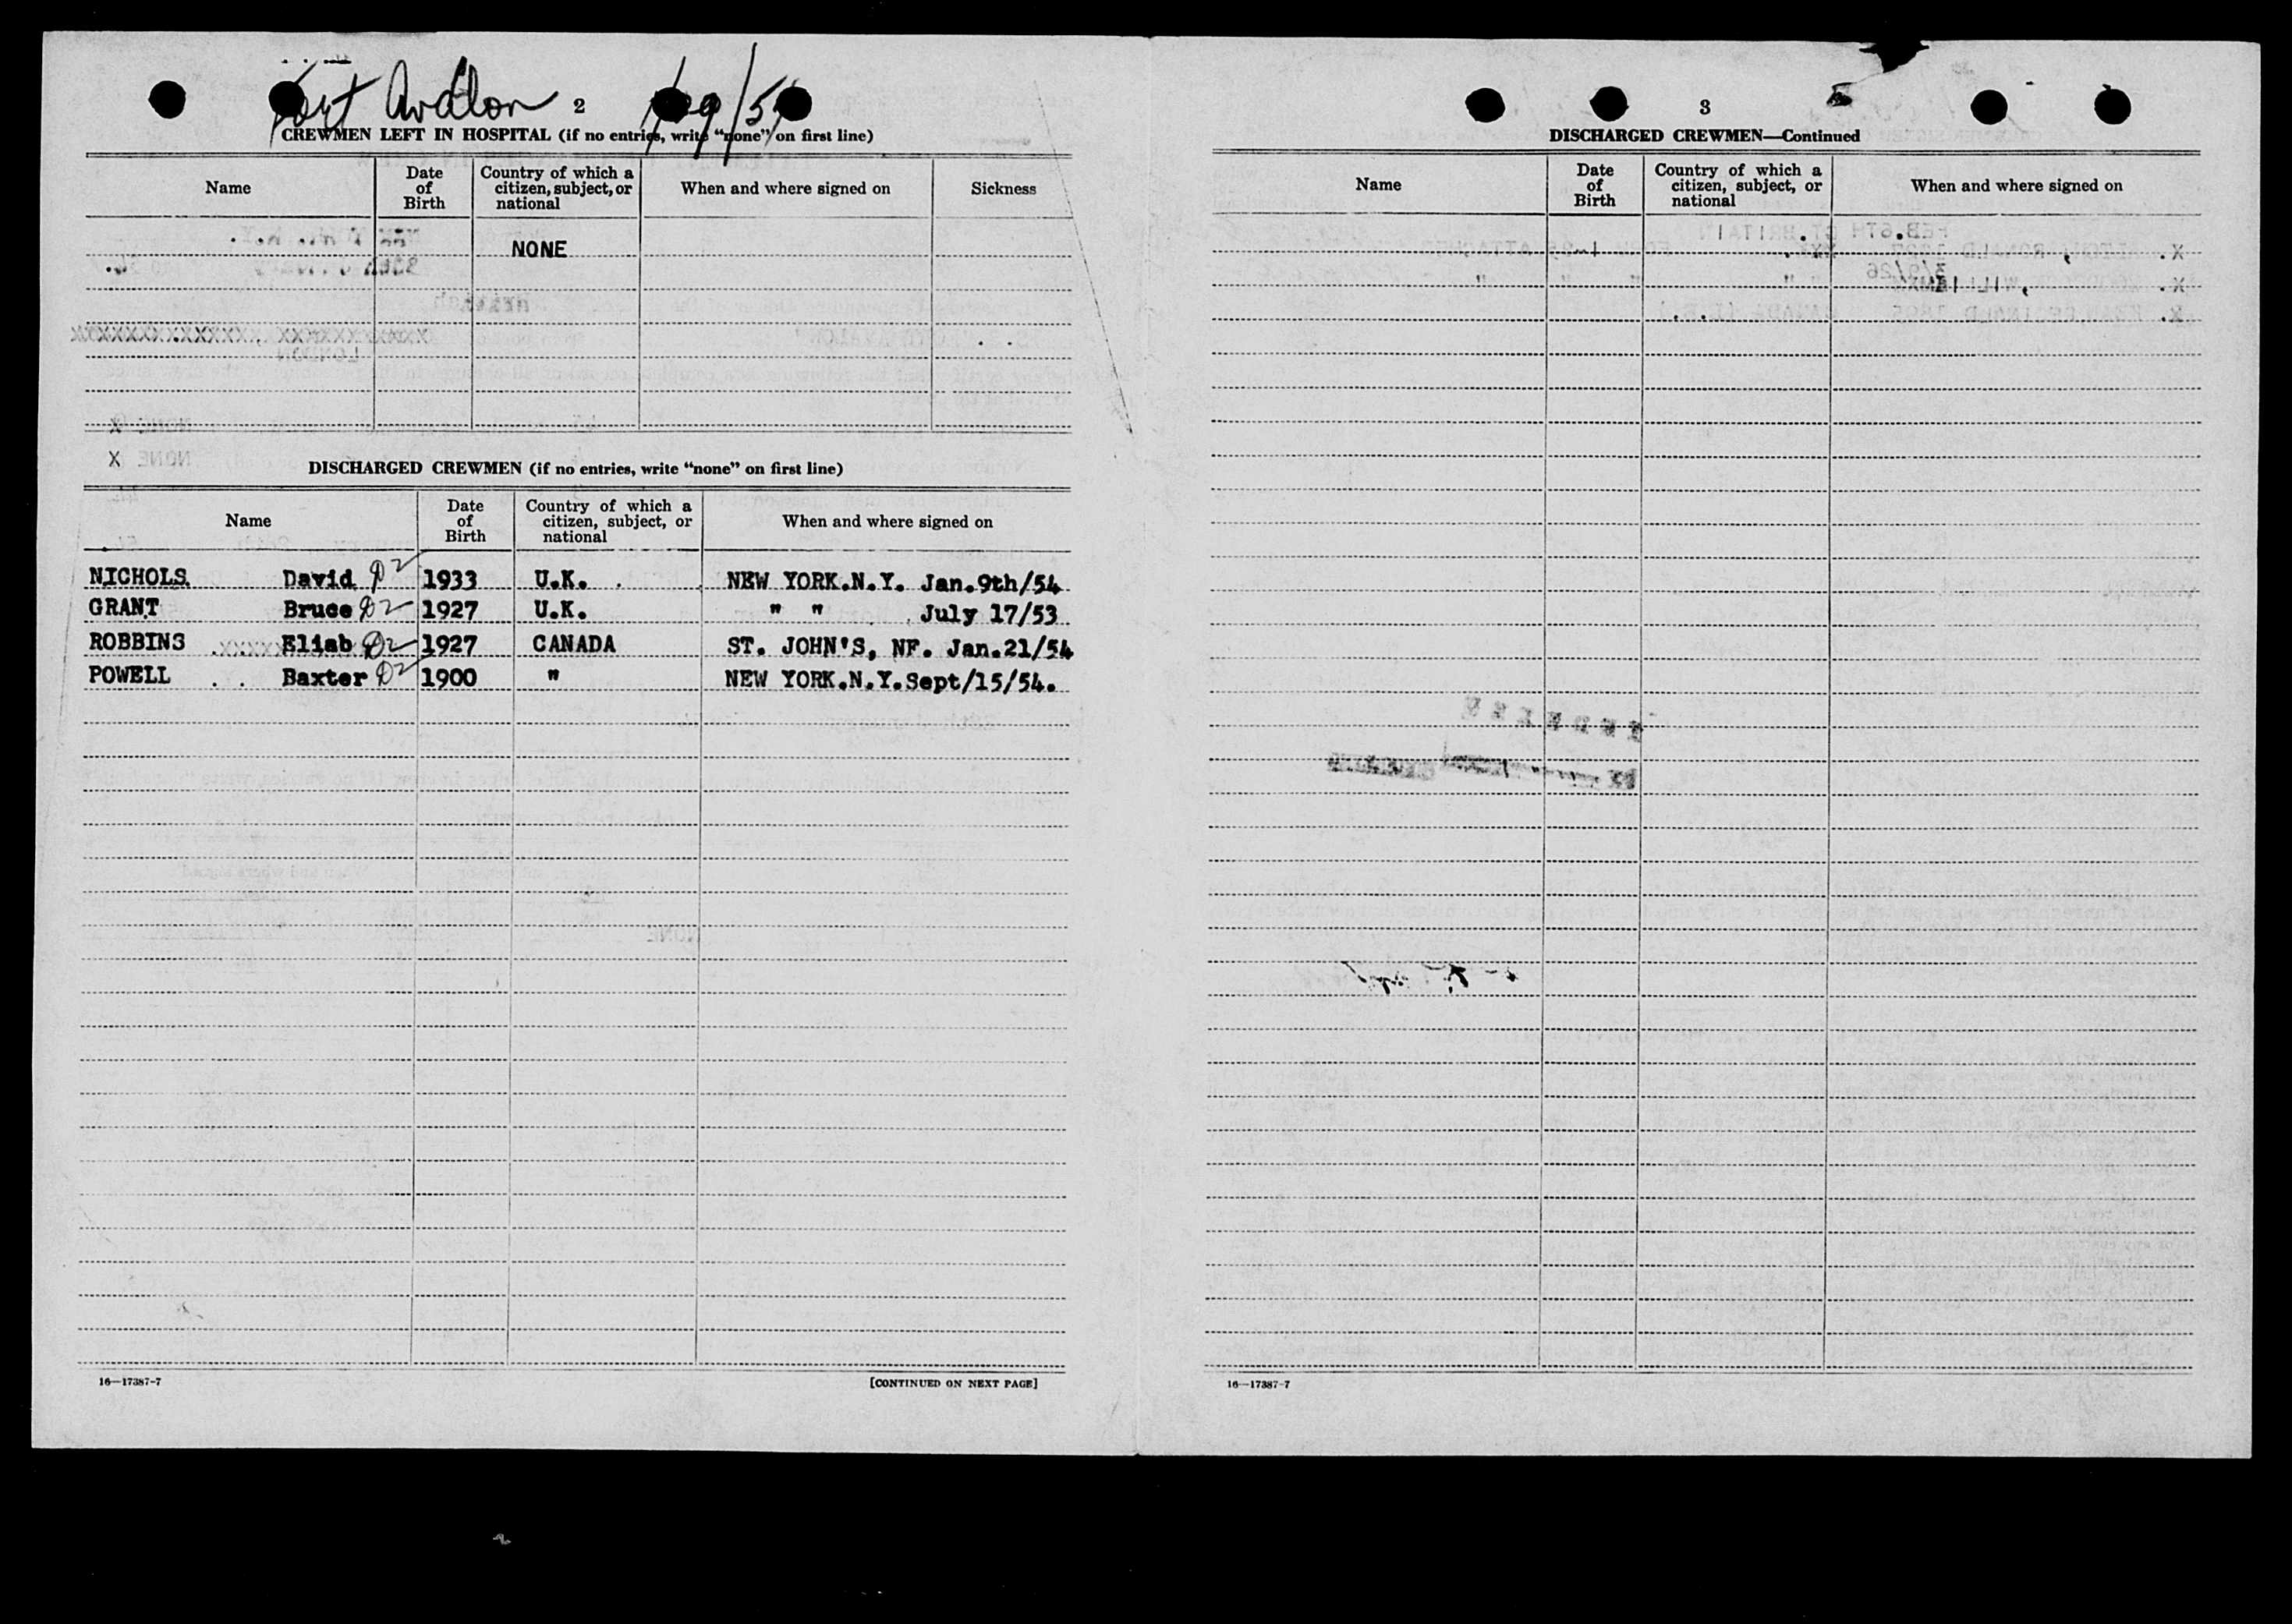 Fort Avalon 2
CREWMEN LEFT IN HOSPITAL (if no entries, write “none” on first line)
Name Date of Birth Country of which a citizen, subject, or national When and where signed on Sickness
NONE
DISCHARGED CREWMEN (if no entries, write “none” on first line)
Name Date of Birth Country of which a citizen, subject, or national When and where signed on
NICHOLS David D2 1933 U.K. NEW YORK.N.Y. Jan.9th/54
GRANT Bruce D2 1927 U.K. " " July 17/53
ROBBINS Eliab D2 1927 CANADA ST. JOHN'S, NF. Jan.21/54
POWELL Baxter D2 1900 " NEW YORK.N.Y.Sept/15/54.
16—17387-7 [CONTINUED ON NEXT PAGE]
3
DISCHARGED CREWMEN—Continued
Name Date of Birth Country of which a citizen, subject, or national When and where signed on
16—17387-7